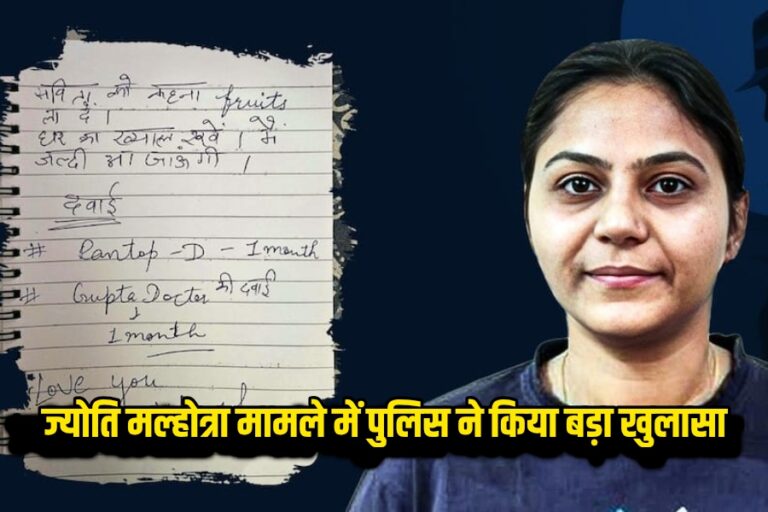 सविता को कहना fruits
ला दे ।
घर का ख्याल रखें । मैं
जल्दी आ जाऊंगी ।
दवाई
# Pantop - D - 1 month
# Gupta Doctor की दवाई
↓
1 month
Love you
ज्योति मल्होत्रा मामले में पुलिस ने किया बड़ा खुलासा